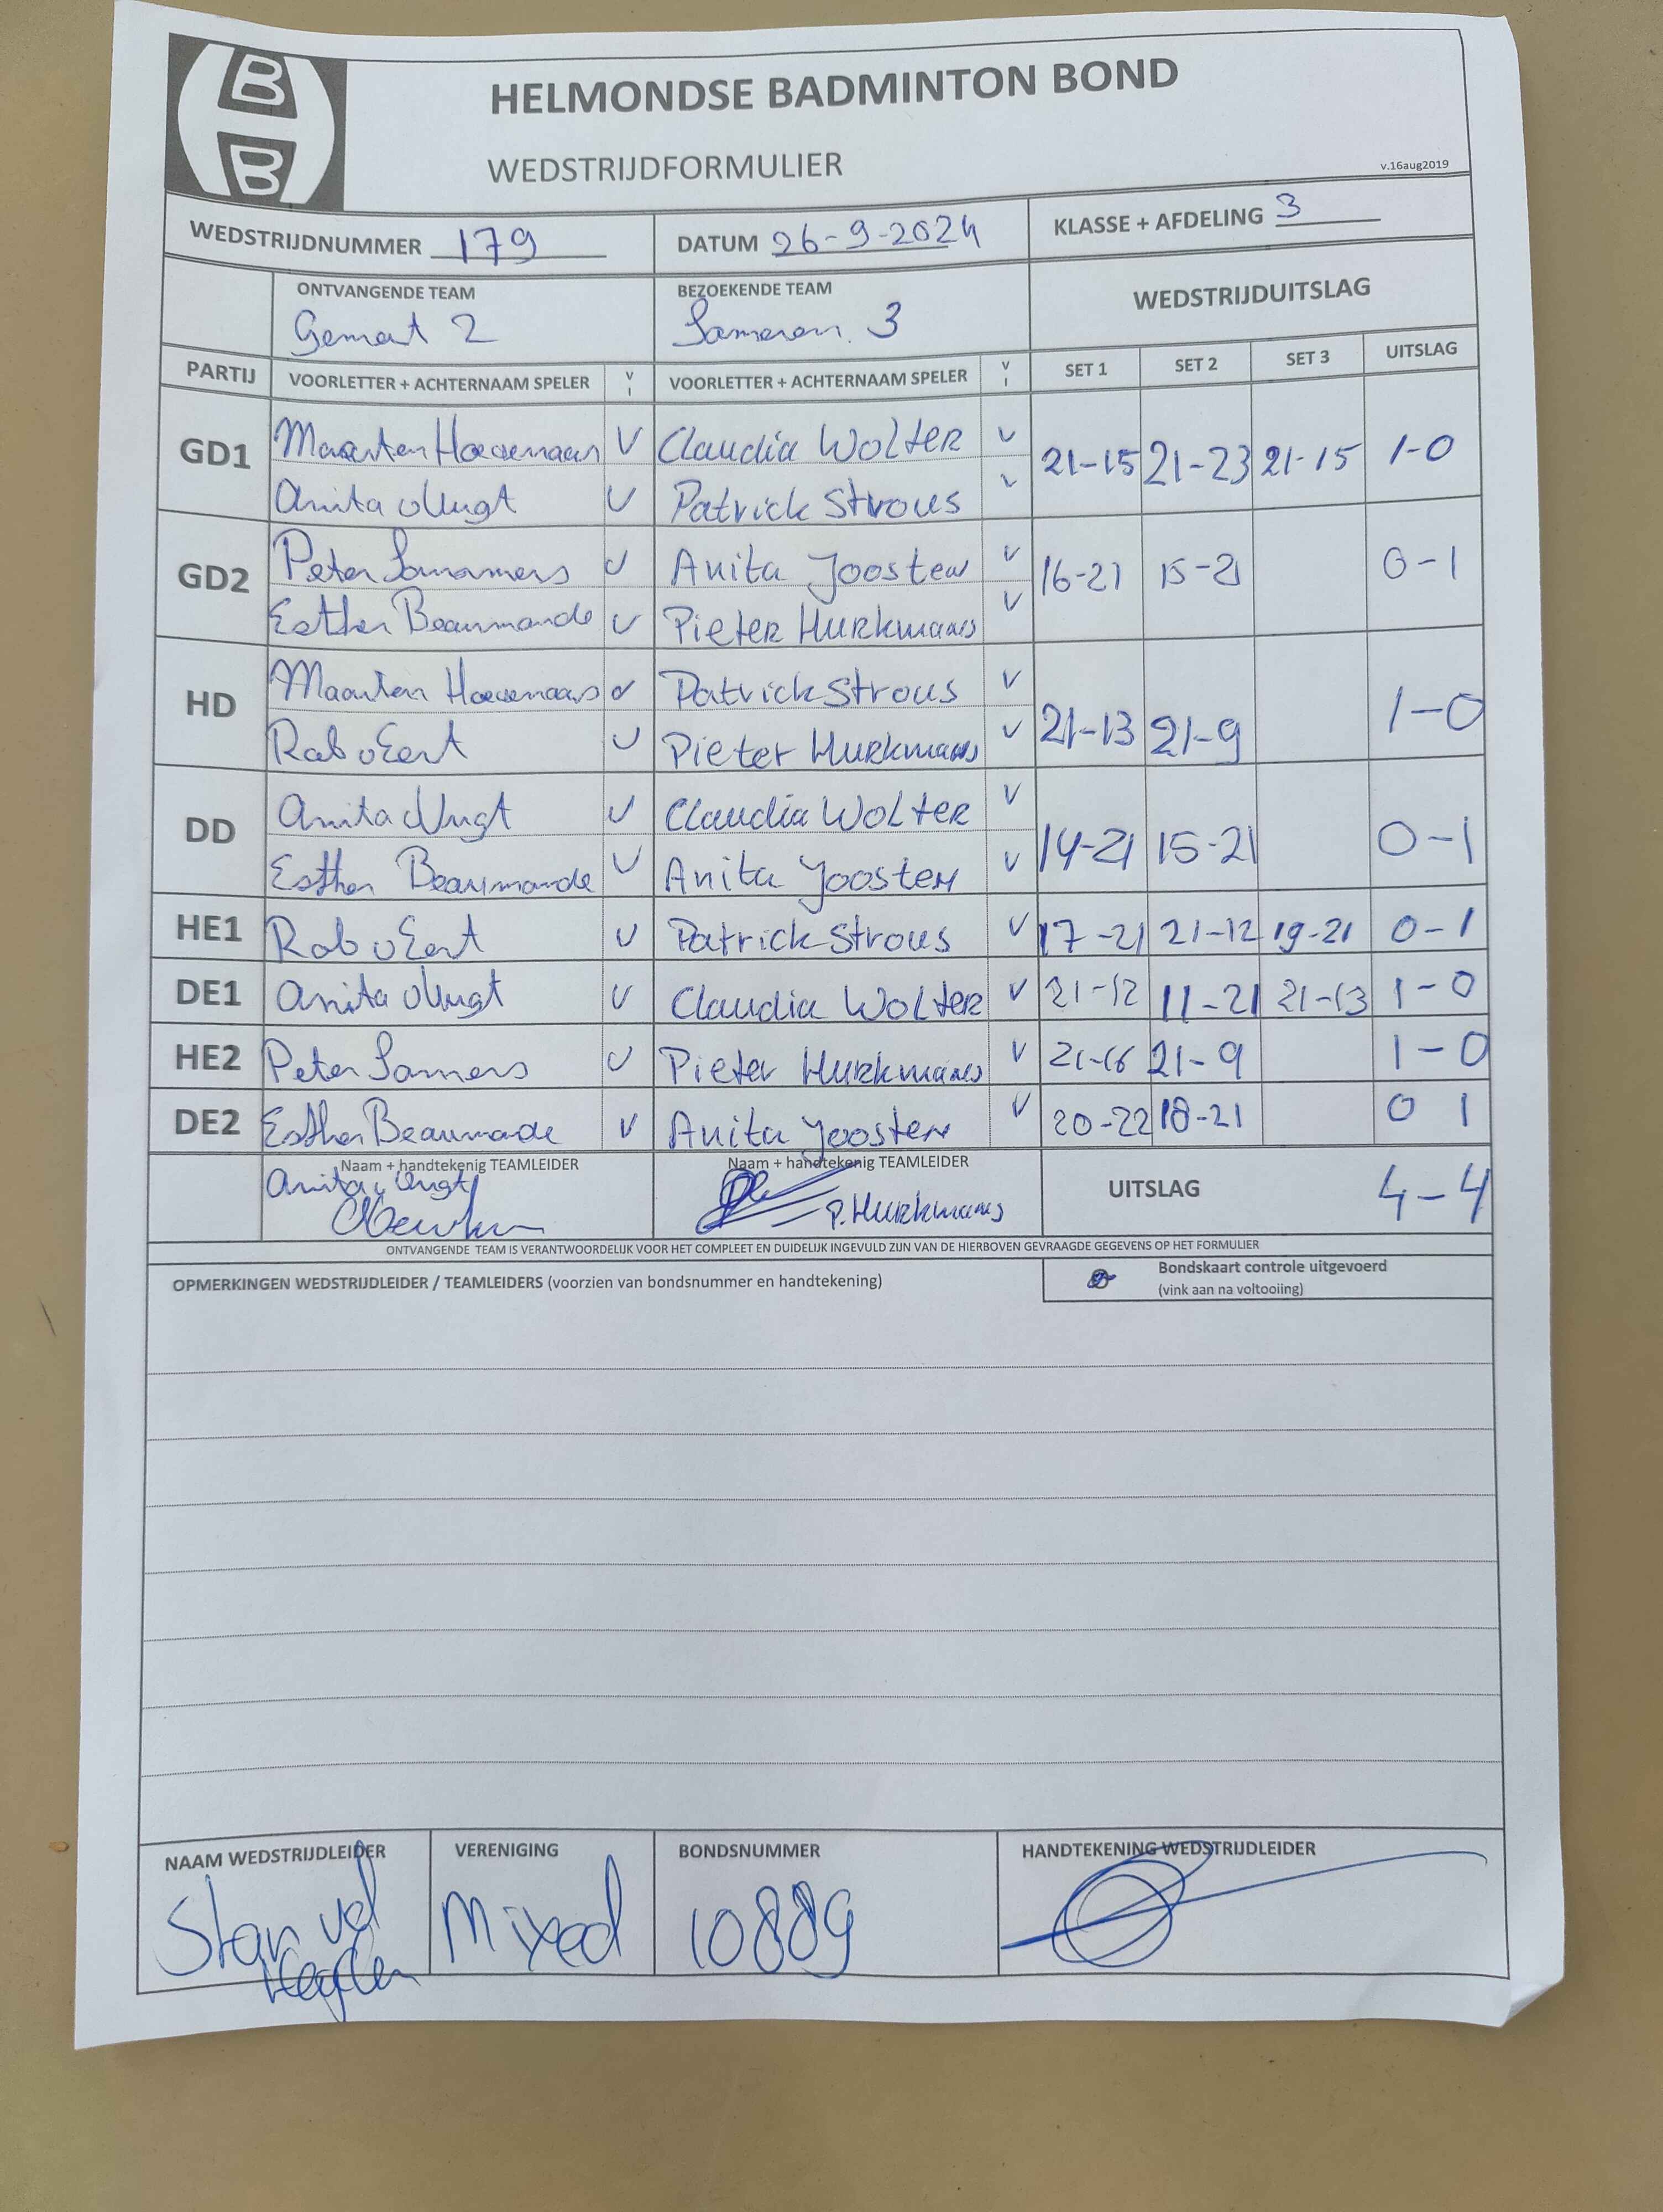 HELMONDSE BADMINTON BOND
WEDSTRIJDFORMULIER
v.16aug2019
WEDSTRIJDNUMMER 179 DATUM 26-9-2024 KLASSE + AFDELING 3
ONTVANGENDE TEAM BEZOEKENDE TEAM WEDSTRIJDUITSLAG
Gemert 2 Someren 3
PARTIJ VOORLETTER + ACHTERNAAM SPELER V I VOORLETTER + ACHTERNAAM SPELER V I SET 1 SET 2 SET 3 UITSLAG
GD1 Maarten Hoevenaars V Claudia Wolter V 21-15 21-23 21-15 1-0
Anita V Patrick Strous V
GD2 Peter V Anita Joosten V 16-21 15-21 0-1
Esther V Pieter Hurkmans V
HD Maarten Hoevenaars V Patrick Strous V 21-13 21-9 1-0
Rob V Pieter Hurkmans V
DD Anita V Claudia Wolter V 14-21 15-21 0-1
Esther V Anita Joosten V
HE1 Rob V Patrick Strous V 17-21 21-12 19-21 0-1
DE1 Anita V Claudia Wolter V 21-12 11-21 21-13 1-0
HE2 Peter Somers V Pieter Hurkmans V 21-16 21-9 1-0
DE2 Esther V Anita Joosten V 20-22 18-21 0 1
Naam + handtekenig TEAMLEIDER Naam + handtekenig TEAMLEIDER UITSLAG 4-4
Anita P. Hurkmans
ONTVANGENDE TEAM IS VERANTWOORDELIJK VOOR HET COMPLEET EN DUIDELIJK INGEVULD ZIJN VAN DE HIERBOVEN GEVRAAGDE GEGEVENS OP HET FORMULIER
OPMERKINGEN WEDSTRIJDLEIDER / TEAMLEIDERS (voorzien van bondsnummer en handtekening) Bondskaart controle uitgevoerd
(vink aan na voltooiing)
NAAM WEDSTRIJDLEIDER VERENIGING BONDSNUMMER HANDTEKENING WEDSTRIJDLEIDER
Stan vd Mixed 10889